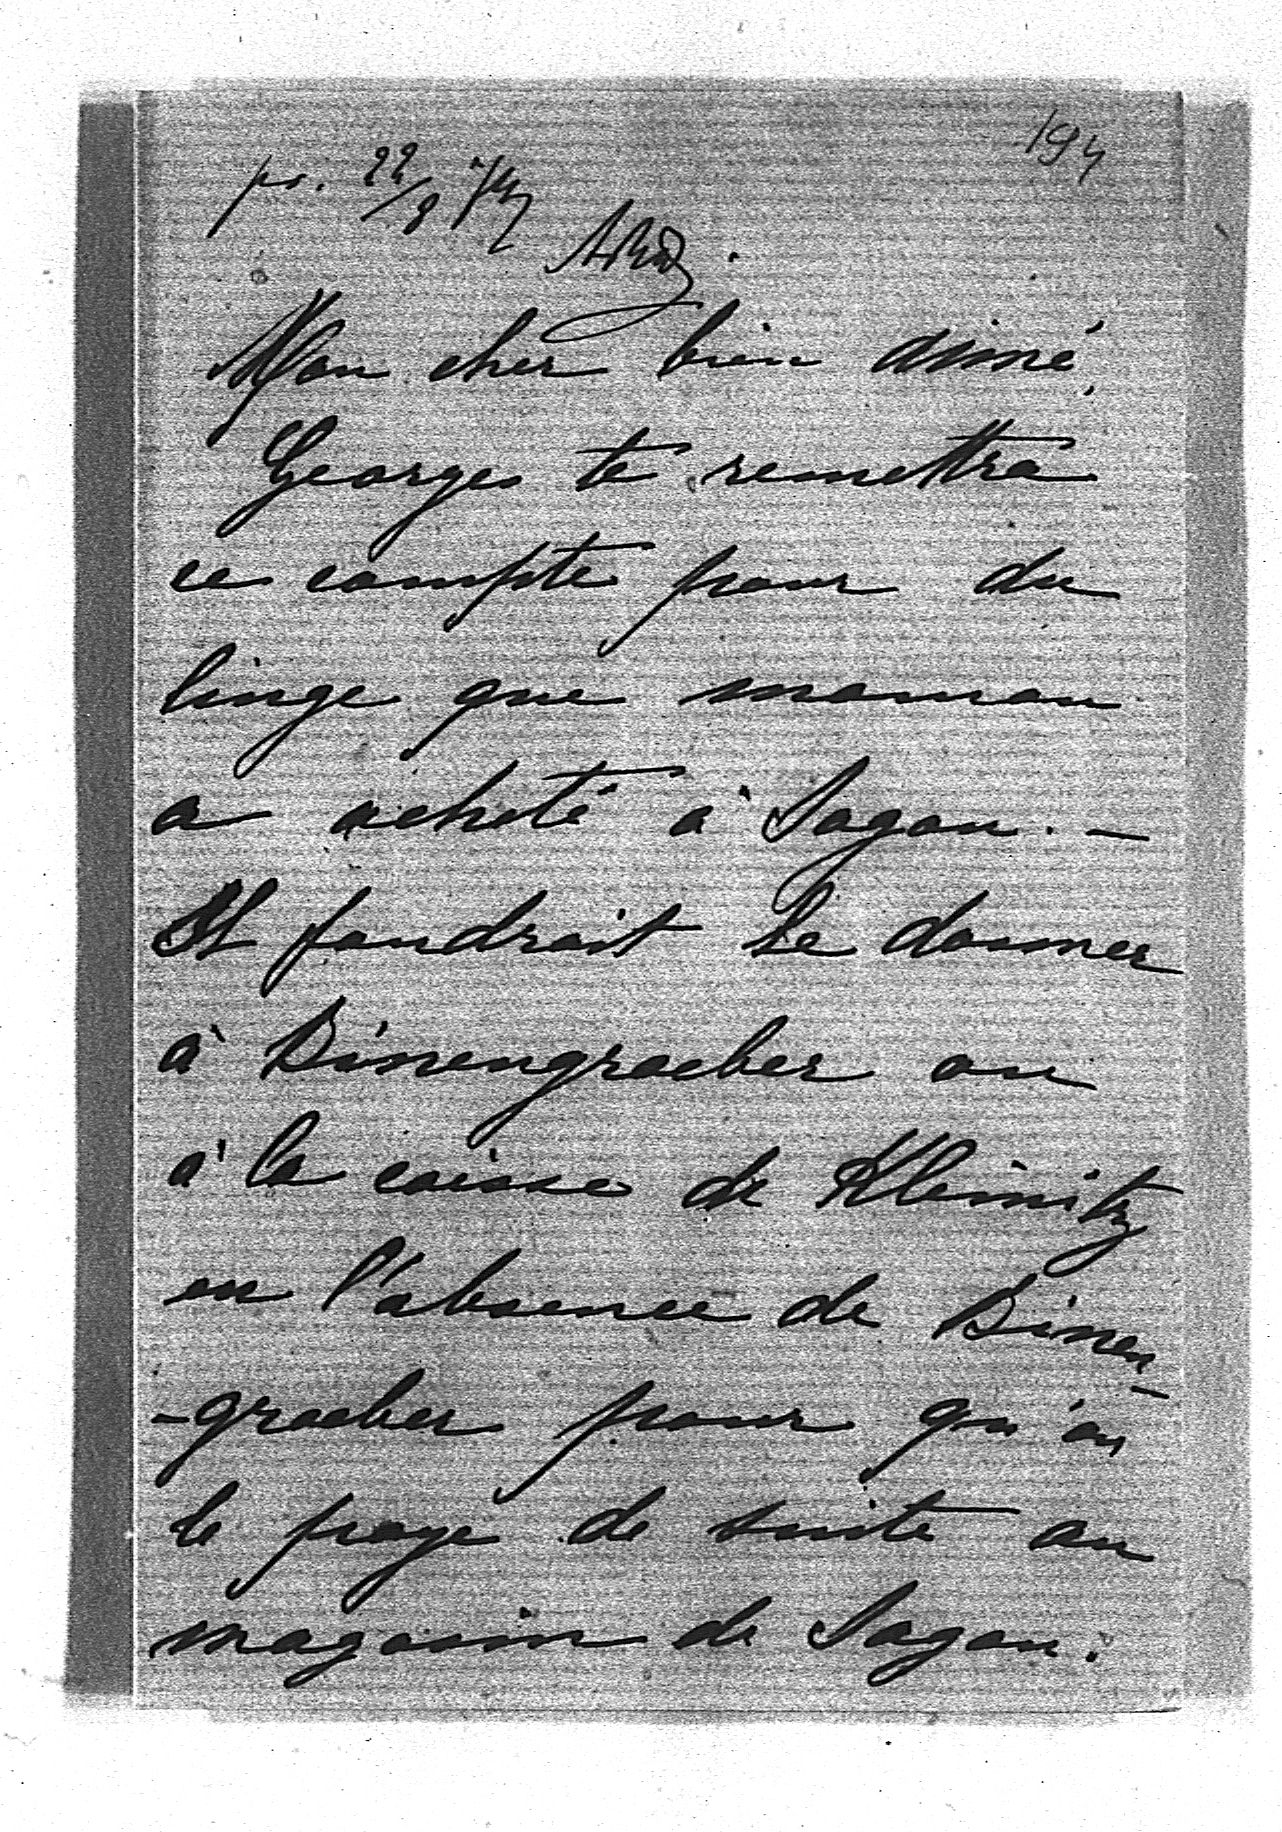 194
pr. 22/8
Mon cher bien aimé,
Georges te remettra
ce compte pour du
linge que maman
a acheté à Sagan. –
Il faudrait le donner
à Binengraeber ou
à la caisse de Kleinitz
en l'absence de Binen-
-graeber pour qu'on
le paye de suite au
magasin de Sagan.